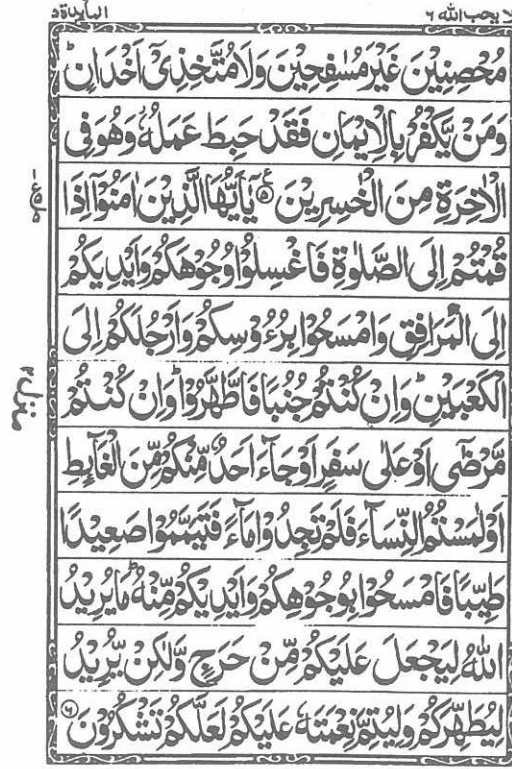 لا يحب الله ٦
المآئدة ٥
مُحْصِنِيْنَ غَيْرَ مُسٰفِحِيْنَ وَلَا مُتَّخِذِيْۤ اَخْدَانٍ ؕ
وَمَنْ يَّكْفُرْ بِالْاِيْمَانِ فَقَدْ حَبِطَ عَمَلُهٗ ؗ وَهُوَ فِى
الْاٰخِرَةِ مِنَ الْخٰسِرِيْنَ ۝۵ يٰۤاَيُّهَا الَّذِيْنَ اٰمَنُوْۤا اِذَا
قُمْتُمْ اِلَى الصَّلٰوةِ فَاغْسِلُوْا وُجُوْهَكُمْ وَاَيْدِيَكُمْ
اِلَى الْمَرَافِقِ وَامْسَحُوْا بِرُءُوْسِكُمْ وَاَرْجُلَكُمْ اِلَى
الْكَعْبَيْنِ ؕ وَاِنْ كُنْتُمْ جُنُبًا فَاطَّهَّرُوْا ؕ وَاِنْ كُنْتُمْ
مَّرْضٰۤى اَوْ عَلٰى سَفَرٍ اَوْ جَآءَ اَحَدٌ مِّنْكُمْ مِّنَ الْغَآئِطِ
اَوْ لٰمَسْتُمُ النِّسَآءَ فَلَمْ تَجِدُوْا مَآءً فَتَيَمَّمُوْا صَعِيْدًا
طَيِّبًا فَامْسَحُوْا بِوُجُوْهِكُمْ وَاَيْدِيْكُمْ مِّنْهُ ؕ مَا يُرِيْدُ
اللّٰهُ لِيَجْعَلَ عَلَيْكُمْ مِّنْ حَرَجٍ وَّلٰكِنْ يُّرِيْدُ
لِيُطَهِّرَكُمْ وَلِيُتِمَّ نِعْمَتَهٗ عَلَيْكُمْ لَعَلَّكُمْ تَشْكُرُوْنَ ۝۶
منزل ۲